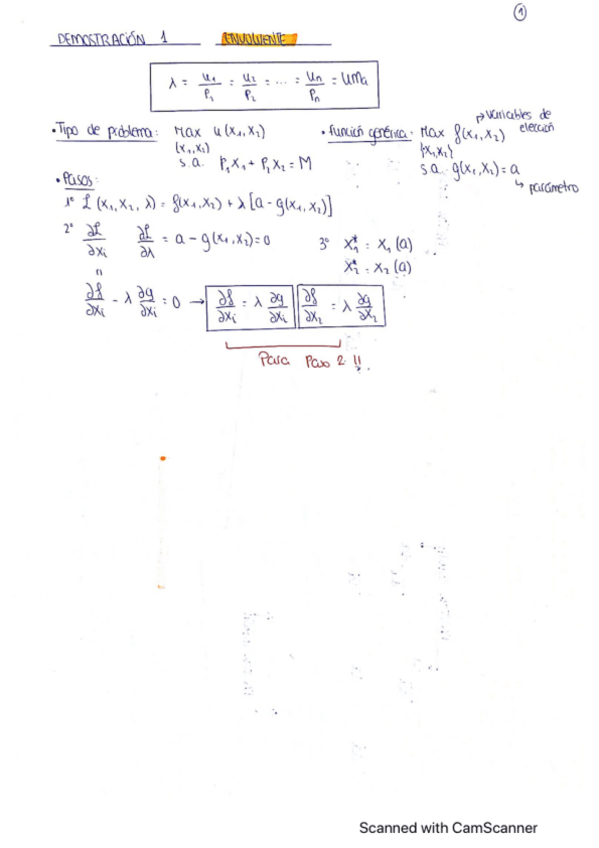 1
DEMOSTRACIÓN 1 ENVOLVENTE
λ = u₁/P₁ = u₂/P₂ = ... = un/Pn = UMg
• Tipo de problema: Max u(x₁, x₂)
{x₁, x₂}
s.a. P₁x₁ + P₂x₂ = M
• Función genérica: Max f(x₁, x₂) → variables de elección
{x₁, x₂}
s.a. g(x₁, x₂) = a
↳ parámetro
• Pasos:
1º L(x₁, x₂, λ) = f(x₁, x₂) + λ[a - g(x₁, x₂)]
2º ∂L/∂xi ∂L/∂λ = a - g(x₁, x₂) = 0
3º x₁* = x₁(a)
x₂* = x₂(a)
"
∂f/∂xi - λ ∂g/∂xi = 0 → ∂f/∂xi = λ ∂g/∂xi ∂f/∂x₂ = λ ∂g/∂x₂
Para Paso 2 !!.
Scanned with CamScanner